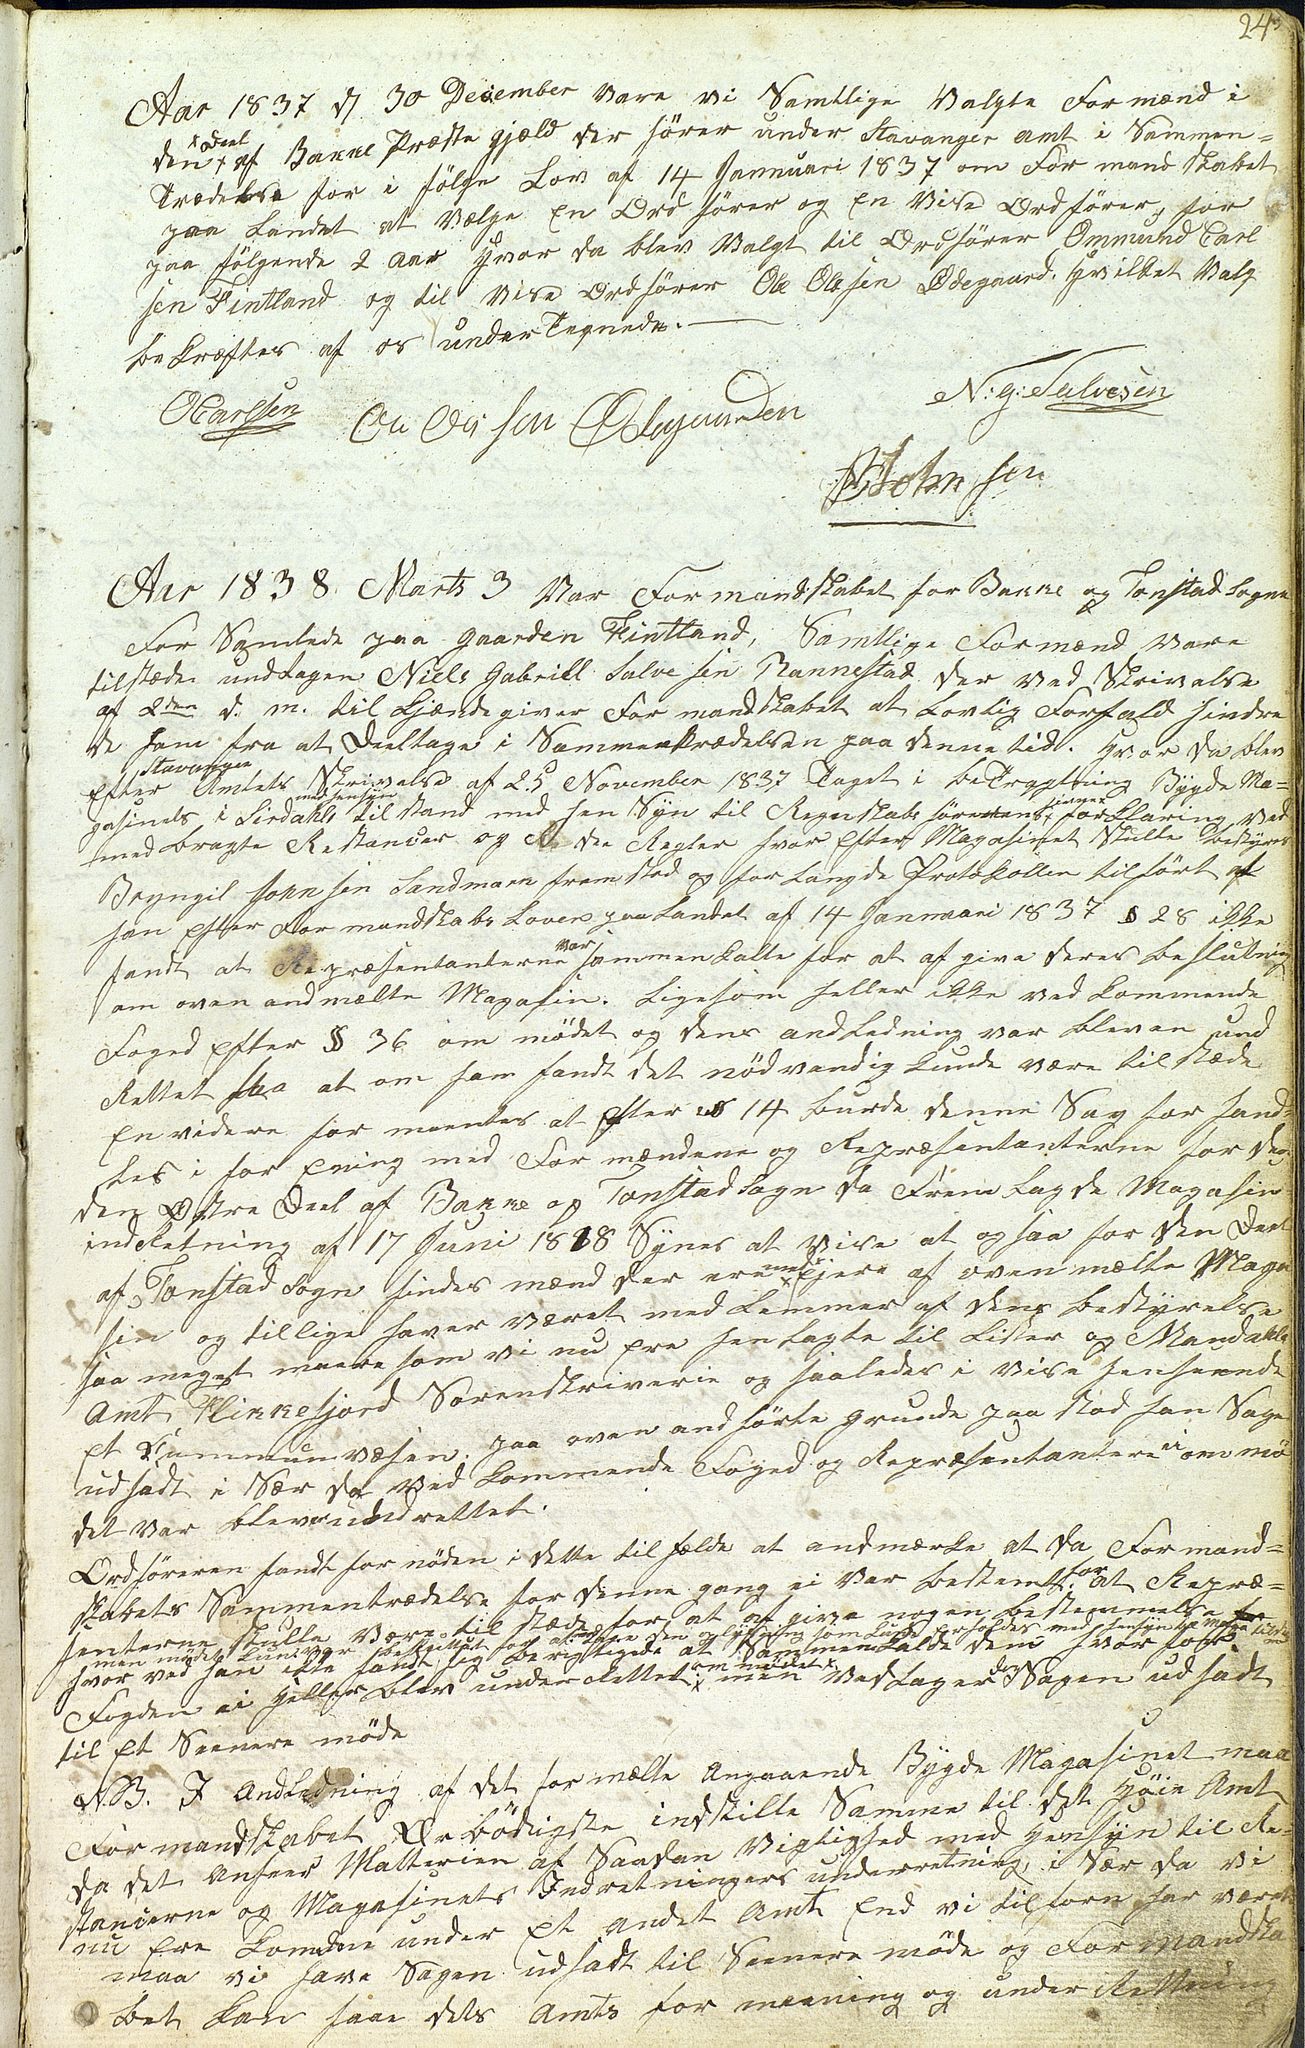 24
Aar 1837 d 30 December vare vi Samtlige Valgte Formænd i
den Deel af Bakke Præste gjæld der hører under Stavanger amt i Sammen=
Trædelse for i følge Lov af 14 Januari 1837 om For mand skabet
paa Landet at Vælge En Ord fører og En Vise Ordfører, for
paa følgende 2 Aar Hvor da blev Valgt til Ordfører Ommund Carl
sen Fintland og til Vise Ordfører Ole Olsen Ødegaard. Hvilket Valg
be kræftes af os under Tegnede.
OCarlsen
Ole Olsen Ødegaarden
N: G: Salvesen
BJohnsen
Aar 1838 Marts 3 Var Formandskabet for Bakke og Tonstad Sogne
For Samlede paa gaarden Fintland, Samtlige Formænd vare
tilstæde undtagen Niels Gabriel Salve sen Rannestad der ved Skrivelse
af 2den d. m. til kjænde giver For mandskabet at Lovlig Forfald hindre
de ham fra at Deeltage i Sammentrædelsen paa denne tid. Hvor da blev
Stavanger
Efter Amtets Skrivelse af 25 November 1837 Taget i be Tragtning Bygde Ma=
gasinets i Sirdahls tilstand med hen Syn til Regnskabs førerens for klaring, ved
med bragte Restancer og de Regler hvor efter Magasinet Skulle bestyres
Bryngil Johnsen Sandmoen frem stod og for langde Protokollen tilført at
han efter Formandskabs Loven paa Landet af 14 Januari 1837 § 28 ikke
fandt at Repræsentanterne var sammen kalte for at af give deres beslutning
om oven andmælte Magasin. Ligesom heller ikke ved kommende
Foged efter § 36 om mødet og dens andledning var bleven und
Rettet saa at om ham fandt det nødvendig kunde være til stæde
En videre for meentes at efter § 14 burde denne Sag for hand=
les i for ening med For mændene og Repræsentanterne for
den Østre Deel af Bakke og Tonstad Sogn da Frem lagde Magasin
ind Retning af 17 Juni 1818 Synes at vise at og saa for den Deel
af Tonstad Sogn findes mænd der ere med Ejere af oven mælte Maga
sin og tillige haver været med Lemmer af dens bestyrelse
saa meget meere som vi nu ere hen lagte til Lister og Mandahls
Amt Flekkefjord Sorenskriverie og saaledes i vise henseende
et Kummunvæsen, paa oven and førte grunde paa stod han Sagen
udsadt i Sær da ved kommende Foged og Repræsentantere ei om mø
det var bleven undrettet.
Ordføreren fandt for nøden i dette til fælde at andmærke at da Formand=
skabets Sammentrædelse for denne gang ei var bestemt for at Repræ=
senterne skulle være til stæde for at af give nogen bestemmelse
hvor ved han ikke fandt sig berigtigede at Sammenkalde dem hvor for
Fogden ei heller blev under Rettet om mødet men vedtager Sagen udsadt
til Et Seenere møde
N.B. I Andledning af det for mælte Angaaende Bygde Magasinet maa
Formandskabet Ær bødigste indstille Samme til det Høie Amt
da det anseer Matterien af Saadan Vigtighed med Hensyn til Re=
stancerne og Magasinets Indretningers underretning, i Sær da vi
nu Ere komne under Et andet Amt End vi tilforn har været
maa vi have Sagen udsadt til Seenere møde og Formandska
bet kan faae dets Amts for meening og under Retning